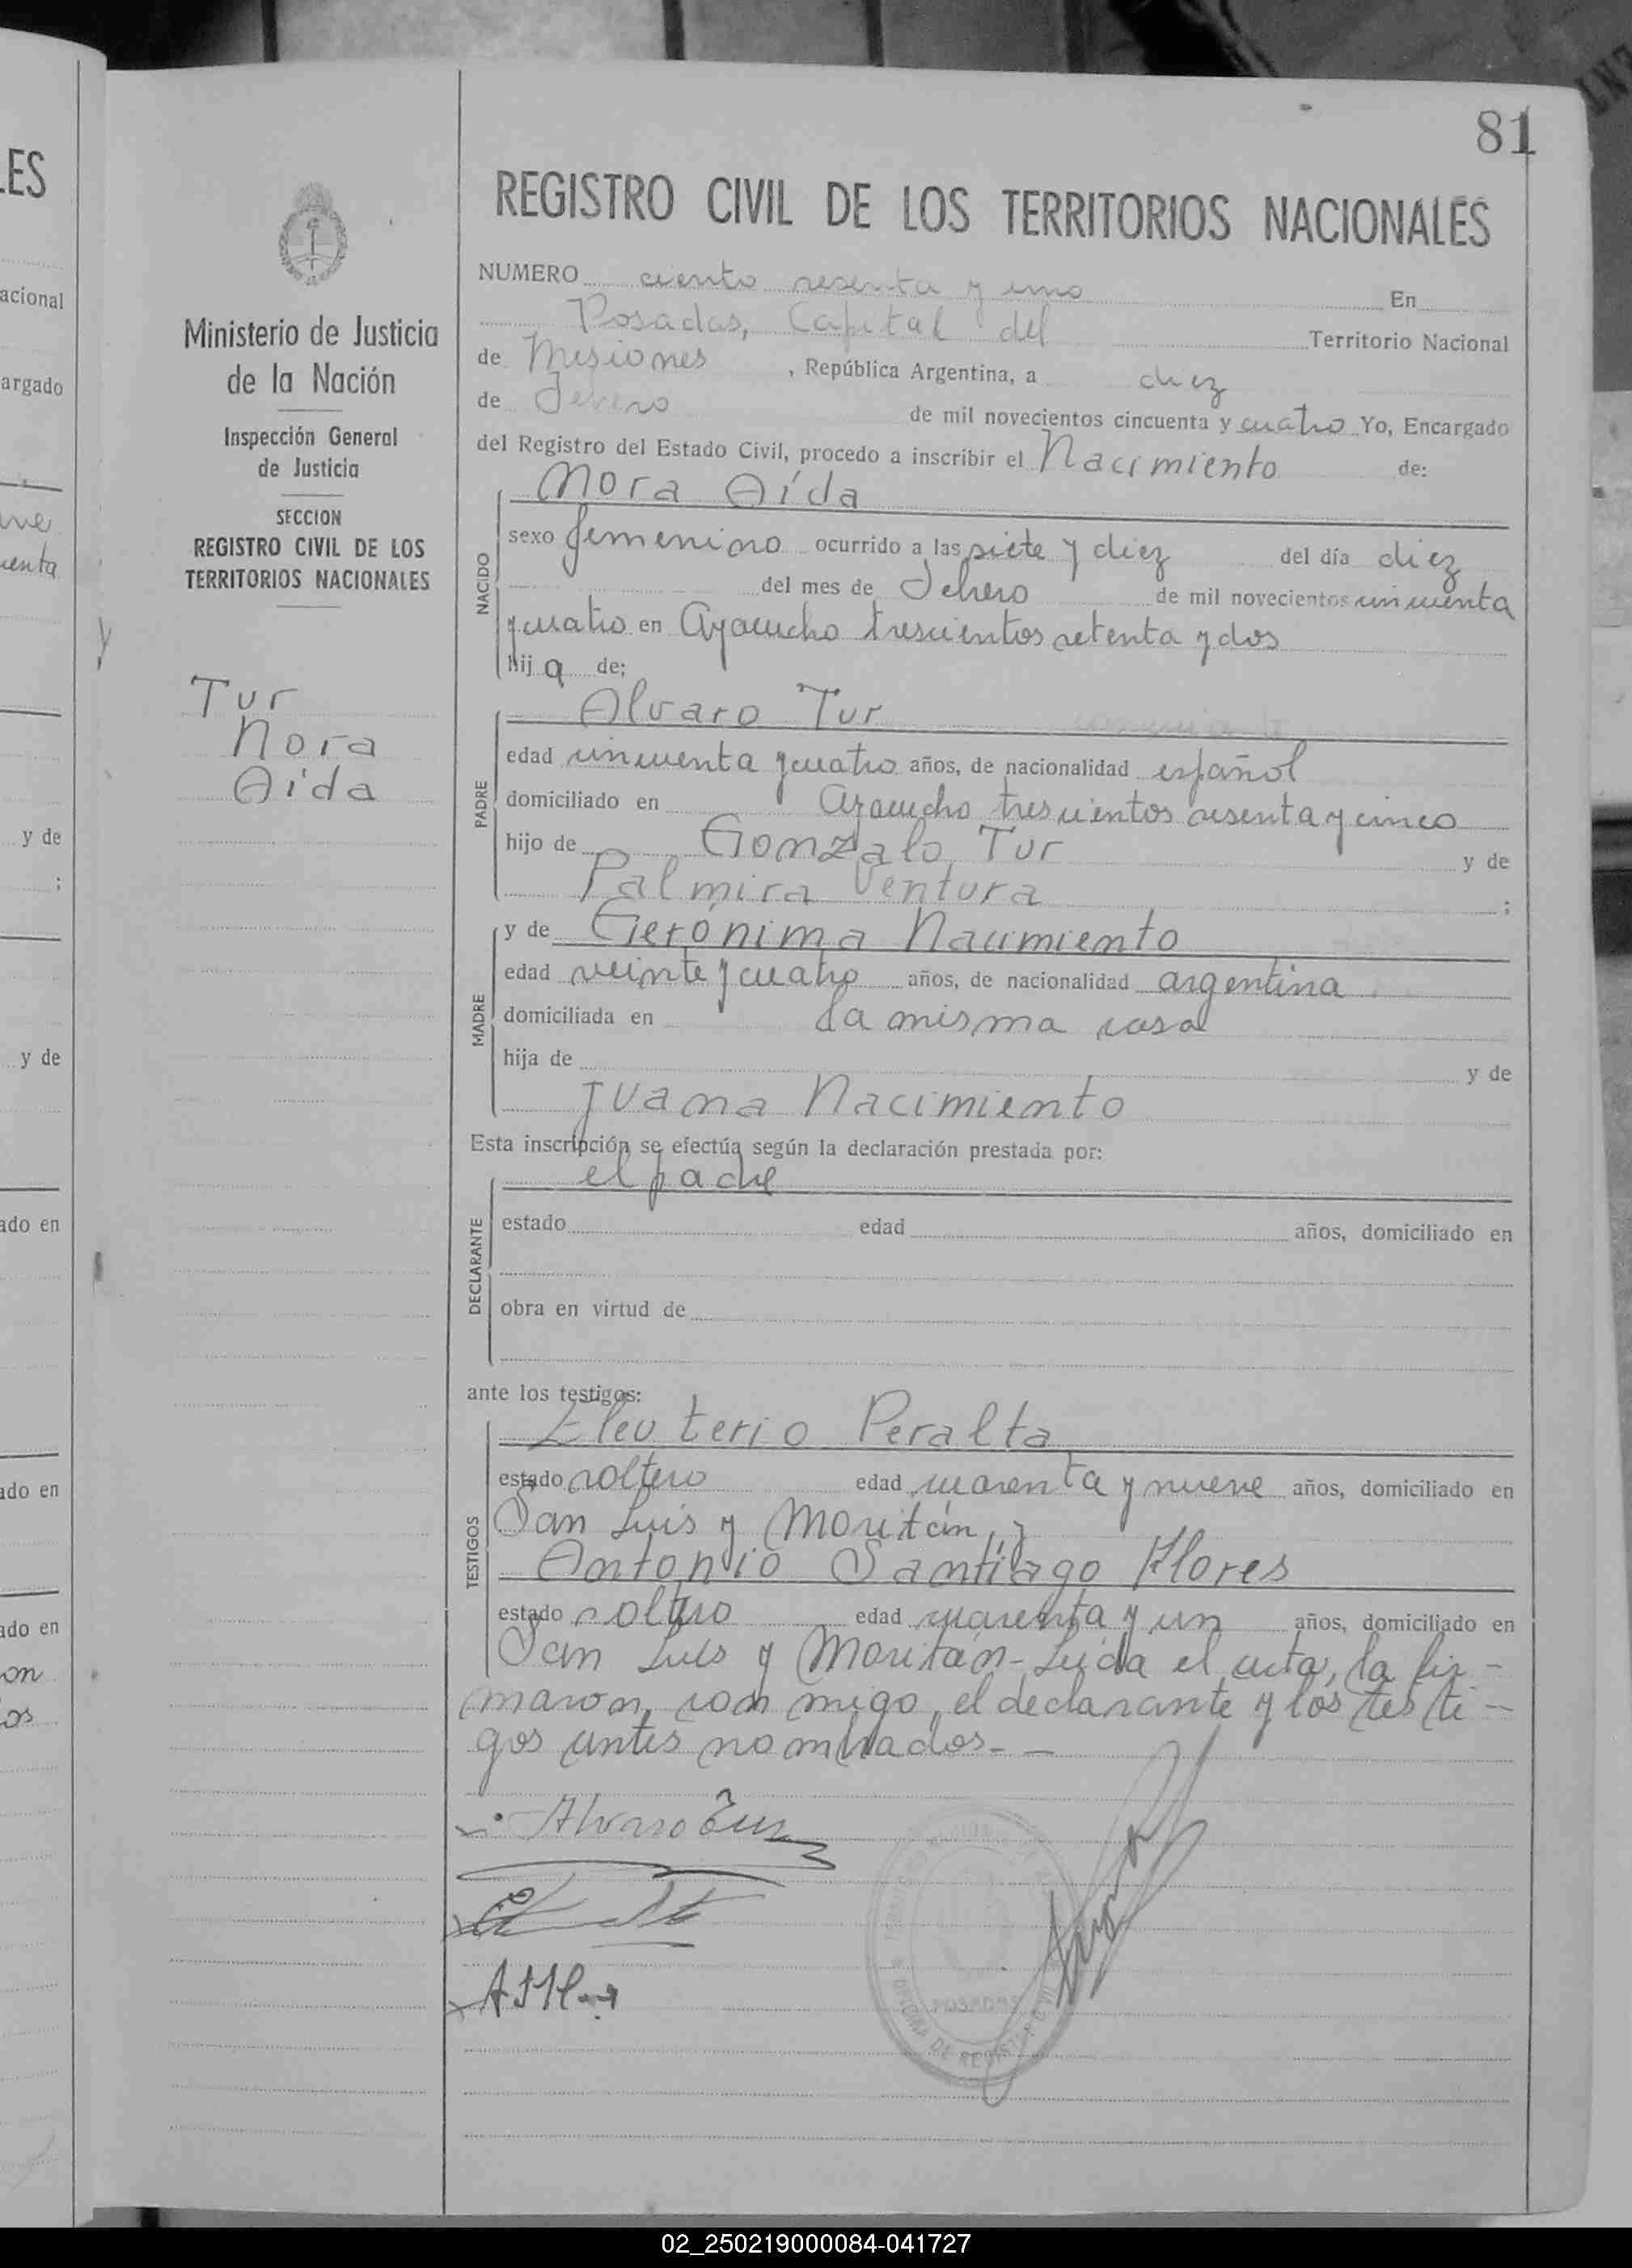 81
REGISTRO CIVIL DE LOS TERRITORIOS NACIONALES
NUMERO ciento sesenta y uno En
Posadas, Capital del Territorio Nacional
de Misiones, República Argentina, a diez
de Febrero de mil novecientos cincuenta y cuatro Yo, Encargado
del Registro del Estado Civil, procedo a inscribir el Nacimiento de:
Nora Aída
NACIDO
sexo femenino ocurrido a las siete y diez del día diez
del mes de Febrero de mil novecientos cincuenta
y cuatro en Ayacucho trescientos setenta y dos
hija de;
Alvaro Tur
PADRE
edad cincuenta y cuatro años, de nacionalidad español
domiciliado en Ayacucho trescientos sesenta y cinco
hijo de Gonzalo Tur y de
Palmira Ventura ;
MADRE
y de Gerónima Nacimiento
edad veinte y cuatro años, de nacionalidad argentina
domiciliada en la misma casa
hija de y de
Juana Nacimiento
Esta inscripción se efectúa según la declaración prestada por:
el padre
DECLARANTE
estado edad años, domiciliado en
obra en virtud de
ante los testigos:
TESTIGOS
Eleuterio Peralta
estado soltero edad cuarenta y nueve años, domiciliado en
San Luis y Moritán, y
Antonio Santiago Flores
estado soltero edad cuarenta y un años, domiciliado en
San Luis y Moritán - Leída el acta, la fir-
maron, con migo, el declarante y los testi-
gos antes nombrados. -
Alvaro Tur
OFICINA DE REGISTRO CIVIL
POSADAS
Ministerio de Justicia
de la Nación
Inspección General
de Justicia
SECCION
REGISTRO CIVIL DE LOS
TERRITORIOS NACIONALES
Tur
Nora
Aida
ES
acional
argado
enta
y de
;
y de
ado en
ado en
ado en
on
os
02_250219000084-041727